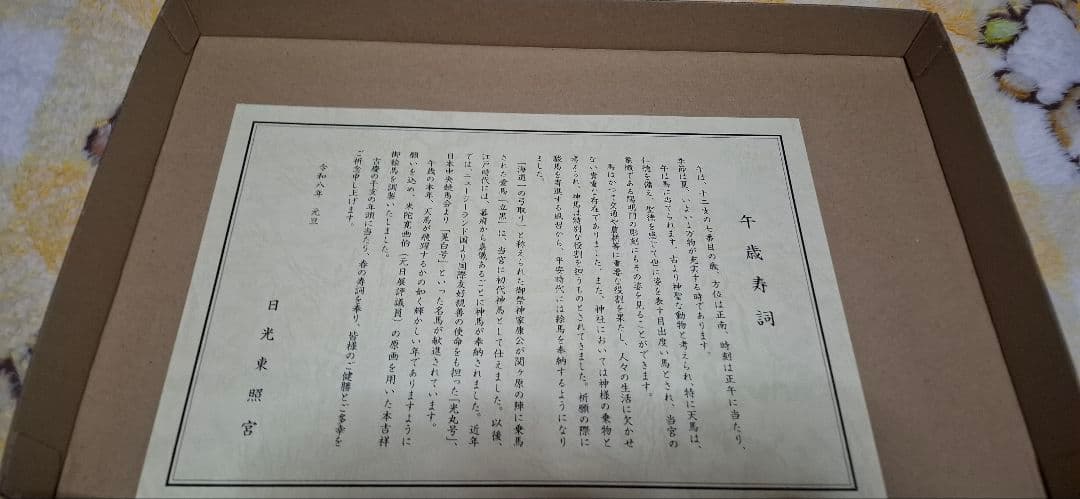 午歳寿詞
午は、十二支の七番目の歳、方位は正南、時刻は正午に当たり、
季節は夏、いよいよ万物が充実する時であります。
午は馬に当てられます。古より神聖な動物と考えられ、特に天馬は、
仁徳を備え、聖徳を感じて世に姿を表す目出度い馬とされ、当宮の
象徴である陽明門の彫刻にもその姿を見ることができます。
馬はかつて交通や農耕等に重要な役割を果たし、人々の生活に欠かせ
ない貴重な存在でありました。また、神社においては神様の乗物と
考えられ、神馬は特別な役割を担うものとされてきました。祈願の際に
駿馬を寄進する風習から、平安時代には絵馬を奉納するようになり
ました。
「海道一の弓取り」と称えられた御祭神家康公が関ヶ原の陣に乗馬
された愛馬「立黒」は、当宮に初代神馬として仕えました。以後、
江戸時代には、幕府から慶儀あるごとに神馬が奉納されました。近年
では、ニュージーランド国より国際友好親善の使命をも担った「光丸号」、
日本中央競馬会より「晃白号」といった名馬が献進されています。
午歳の本年、天馬が飛躍するかの如く輝かしい年でありますように
願いを込め、米陀寛画伯（元日展評議員）の原画を用いた本吉祥
御絵馬を調製いたしました。
吉慶の干支の年頭に当たり、春の寿詞を奉り、皆様のご健勝とご多幸を
ご祈念申し上げます。
令和八年　元旦
日光東照宮